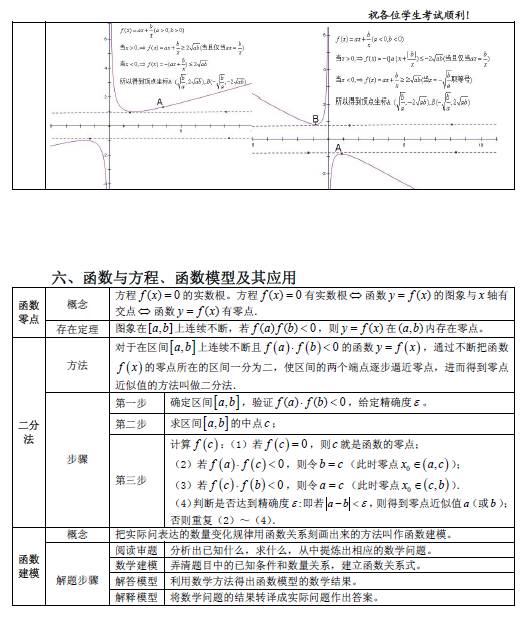 祝各位学生考试顺利!
f(x)=ax+b/x(a>0,b>0)
当x>0,⇒f(x)=ax+b/x≥2√ab(当且仅当ax=b/x)
所以得到顶点坐标A(√b/a,2√ab),B(-√b/a,-2√ab)
A
f(x)=ax+b/x(a<0,b<0)
B
A
六、函数与方程、函数模型及其应用
函数零点
概念
方程f(x)=0的实数根。方程f(x)=0有实数根⇔函数y=f(x)的图象与x轴有
交点⇔函数y=f(x)有零点.
存在定理
图象在[a,b]上连续不断,若f(a)f(b)<0,则y=f(x)在(a,b)内存在零点。
二分法
方法
对于在区间[a,b]上连续不断且f(a)·f(b)<0的函数y=f(x),通过不断把函数
f(x)的零点所在的区间一分为二,使区间的两个端点逐步逼近零点,进而得到零点
近似值的方法叫做二分法.
步骤
第一步
确定区间[a,b],验证f(a)·f(b)<0,给定精确度ε。
第二步
求区间[a,b]的中点c;
第三步
计算f(c):(1)若f(c)=0,则c就是函数的零点;
(2)若f(a)·f(c)<0,则令b=c(此时零点x₀∈(a,c));
(3)若f(c)·f(b)<0,则令a=c(此时零点x₀∈(c,b)).
(4)判断是否达到精确度ε:即若|a-b|<ε,则得到零点近似值a(或b);
否则重复(2)~(4).
函数建模
概念
把实际问表达的数量变化规律用函数关系刻画出来的方法叫作函数建模。
解题步骤
阅读审题
分析出已知什么,求什么,从中提炼出相应的数学问题。
数学建模
弄清题目中的已知条件和数量关系,建立函数关系式。
解答模型
利用数学方法得出函数模型的数学结果。
解释模型
将数学问题的结果转译成实际问题作出答案。